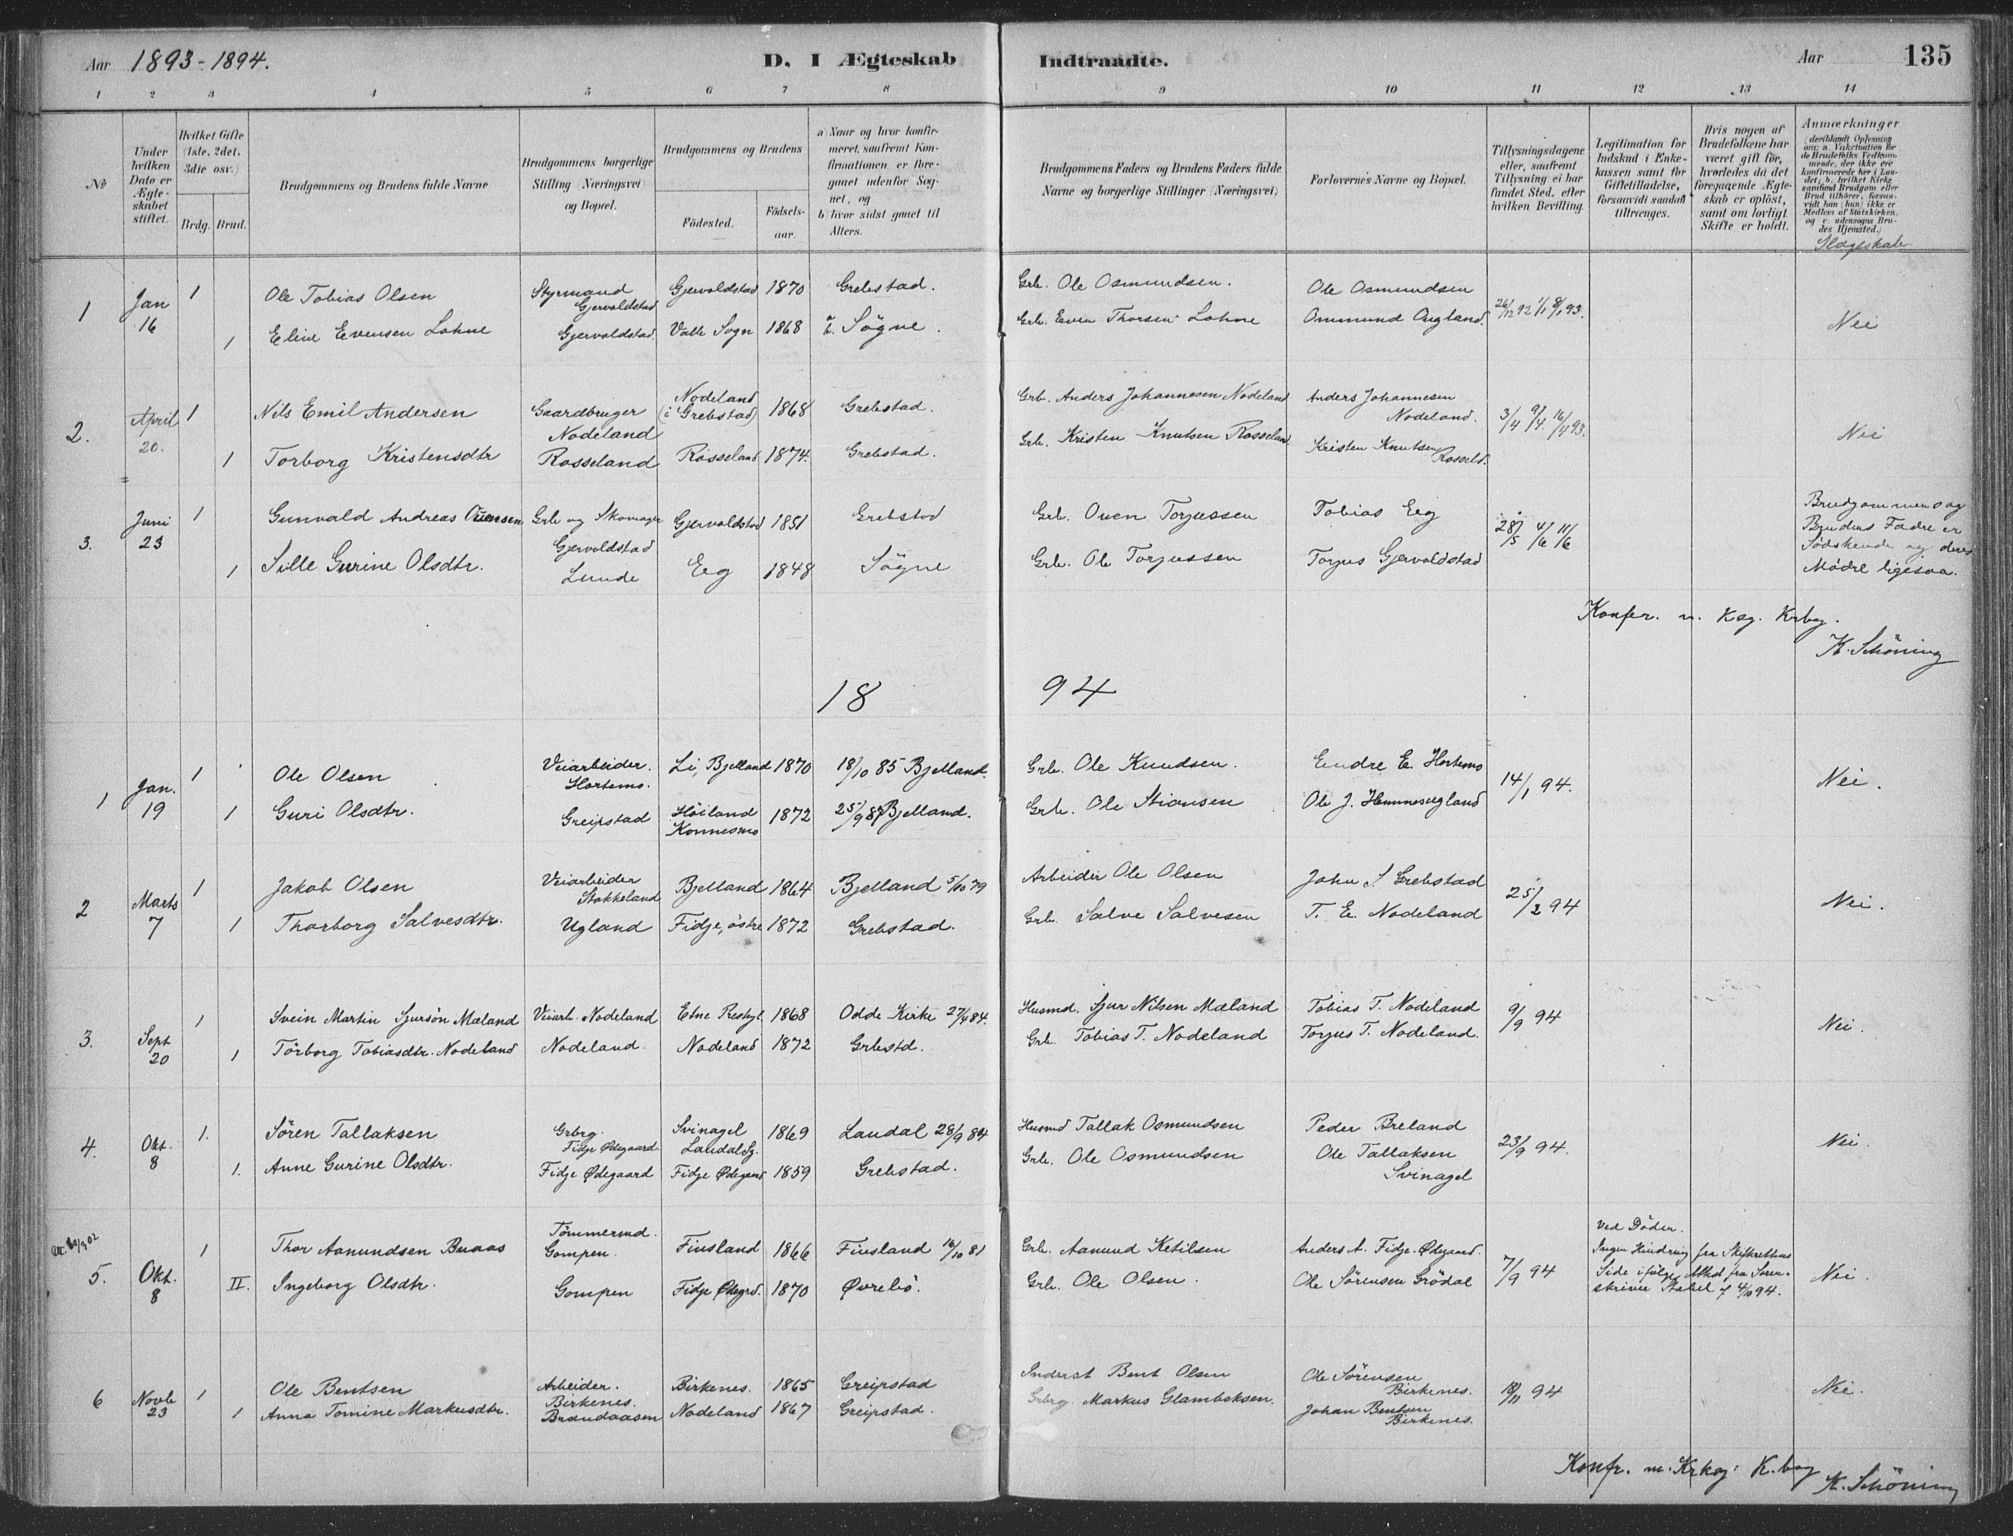 Aar 1893-1894. D. I Ægteskab Indtraadte. Aar 135
1 2 3 4 5 6 7 8 9 10 11 12 13 14
No
Under hvilken Dato er Ægteskabet stiftet.
Hvilket Gifte (1ste, 2det, 3die osv.)
Brdg. Brud.
Brudgommens og Brudens fulde Navne
Brudgommens borgerlige Stilling (Næringsvei) og Bopæl.
Brudgommens og Brudens
Fødested.
Fødselsaar.
a) Naar og hvor konfirmeret, saafremt Konfirmationen er foregaaet udenfor Sognet, og
b) hvor sidst gaaet til Alters.
Brudgommens Faders og Brudens Faders fulde Navne og borgerlige Stillinger (Næringsvei).
Forlovernes Navne og Bopæl.
Tillysningsdagene eller, saafremt Tillysning ei har fundet Sted, efter hvilken Bevilling.
Legitimation for Indskud i Enkekassen samt for Giftetilladelse, forsaavidt saadan tiltrænges.
Hvis nogen af Brudefolkene har været gift før, hvorledes da det foregaaende Ægteskab er opløst, samt om lovligt Skifte er holdt.
Anmærkninger
Slægtskab.
1 Jan 16 1 Ole Tobias Olsen Styrmand Gjervoldstad Gjervoldstad 1870 Grebstad. Grb. Ole Osmundsen. Ole Osmundsen 26/12 92 1/1 8/1 93.
1 Eline Evensen Lohne Gjervoldstad Valle Sogn 1868 Søgne. Grb. Even Thorsen Lohne Ommund Augland. Nei
2. April 20. 1 Nils Emil Andersen Gaardbruger Nodeland Nodeland (i Grebstad) 1868 Grebstad. Grb. Anders Johannesen Nodeland Anders Johannesen Nodeland. 3/4 9/4 16/4 93. Nei
1 Torborg Kristensdtr Rosseland Rosseland 1874. Grebstad. Grb. Kristen Knutsen Rosseland Kristen Knutsen Rosseld.
3. Juni 23 1 Gunvald Andreas Ouensen Grb og Skomager Gjervoldstad Gjervoldstad 1851 Grebstad Grb. Ouen Torjussen Tobias Eeg 28/5 4/6 11/6 Brudgommens og Brudens Fædre er Sødskende og deres Mødre ligesaa.
1 Sille Gurine Olsdtr. Lunde Eeg 1848 Søgne Grb. Ole Torjussen Torjus Gjervoldstad
Konfer. m. Ksg. Krbog.
K. Schöning
18 94
1 Jan. 19 1 Ole Olsen Veiarbeider. Hortemo. Li, Bjelland 1870 18/10 85 Bjelland. Grb. Ole Knudsen. Endre E. Hortemo 14/1 94. Nei.
1 Guri Olsdtr. Greipstad Høiland Konnesmo 1872 25/9 87 Bjelland. Grb. Ole Stiansen Ole J. Hemmesugland
2 Marts 7 1 Jakob Olsen Veiarbeider Stokkeland Bjelland 1864 Bjelland 5/10 79 Arbeider Ole Olsen John S. Grebstad 25/2 94 Nei.
1 Thorborg Salvesdtr. Ugland Fidje, østre 1872 Grebstad. Grb. Salve Salvesen T. E. Nodeland
3. Sept 20 1 Svein Martin Sjursøn Maland Veiarb. Nodeland Etne 1868 Odde Kirke 27/4 84. Husmd. Sjur Nilsen Maland Tobias T. Nodeland 9/9 94 Nei.
1 Torborg Tobiasdtr. Nodeland Nodeland. Nodeland 1872 Grbstd. Grb. Tobias T. Nodeland Torjus T. Nodeland.
4. Okt. 8 1. Søren Tallaksen Grbrg. Fidje Ødegaard. Svinagel Laudal Sg. 1869 Laudal 28/9 84 Husmd Tallak Osmundsen Peder Breland 23/9 94. Nei.
1. Anne Gurine Olsdtr. Fidje Ødegaard Fidje Ødegard 1859 Grebstad. Grb. Ole Osmundsen Ole Tallaksen Svinagel
5. Okt. 8 1 Thor Aanundsen Buaas Tømmermd. Gompen. Finsland 1866 Finsland 16/10 81 Grb. Aanund Ketilsen Anders A. Fidje-Ødegaard. 7/9 94 Ved Døden. Ingen Hindring fra Skifterettens Side ifølge Attest fra Sorenskriver Stabel af 4/10 94. Nei
II. Ingeborg Olsdtr. Gompen Fidje Ødegrd. 1870 Øvrebø. Grb. Ole Olsen. Ole Sørensen Grödal
6 Novb 23 1 Ole Bentsen Arbeider. Birkenes. Birkenes. 1865 Greipstad Inderst Bent Olsen Ole Sørensen Birkenes. 18/11 94 Nei.
1 Anna Tomine Markusdtr. Brandaasen Nodeland 1867 Greipstad. Grbrg. Markus Glambeksen. Johan Bentsen Birkenes.
Konfr. m. Krksg. K.bog
K. Schöning